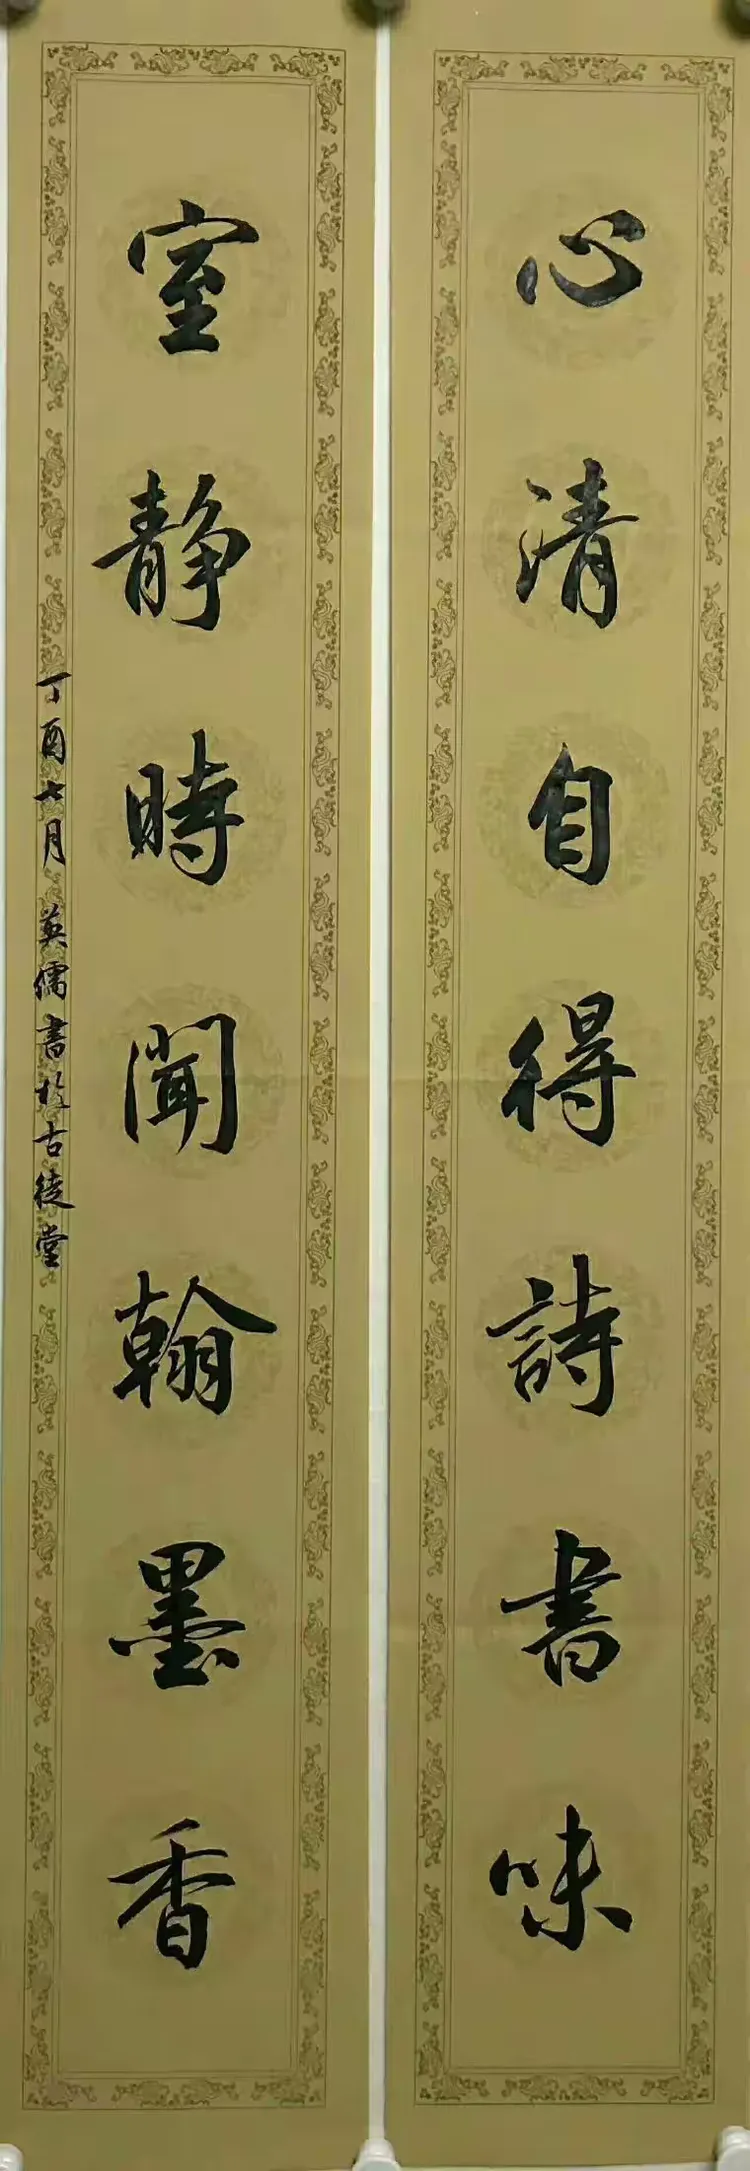 心清自得詩書味
室静時聞翰墨香
丁酉七月英儒書於古徒堂